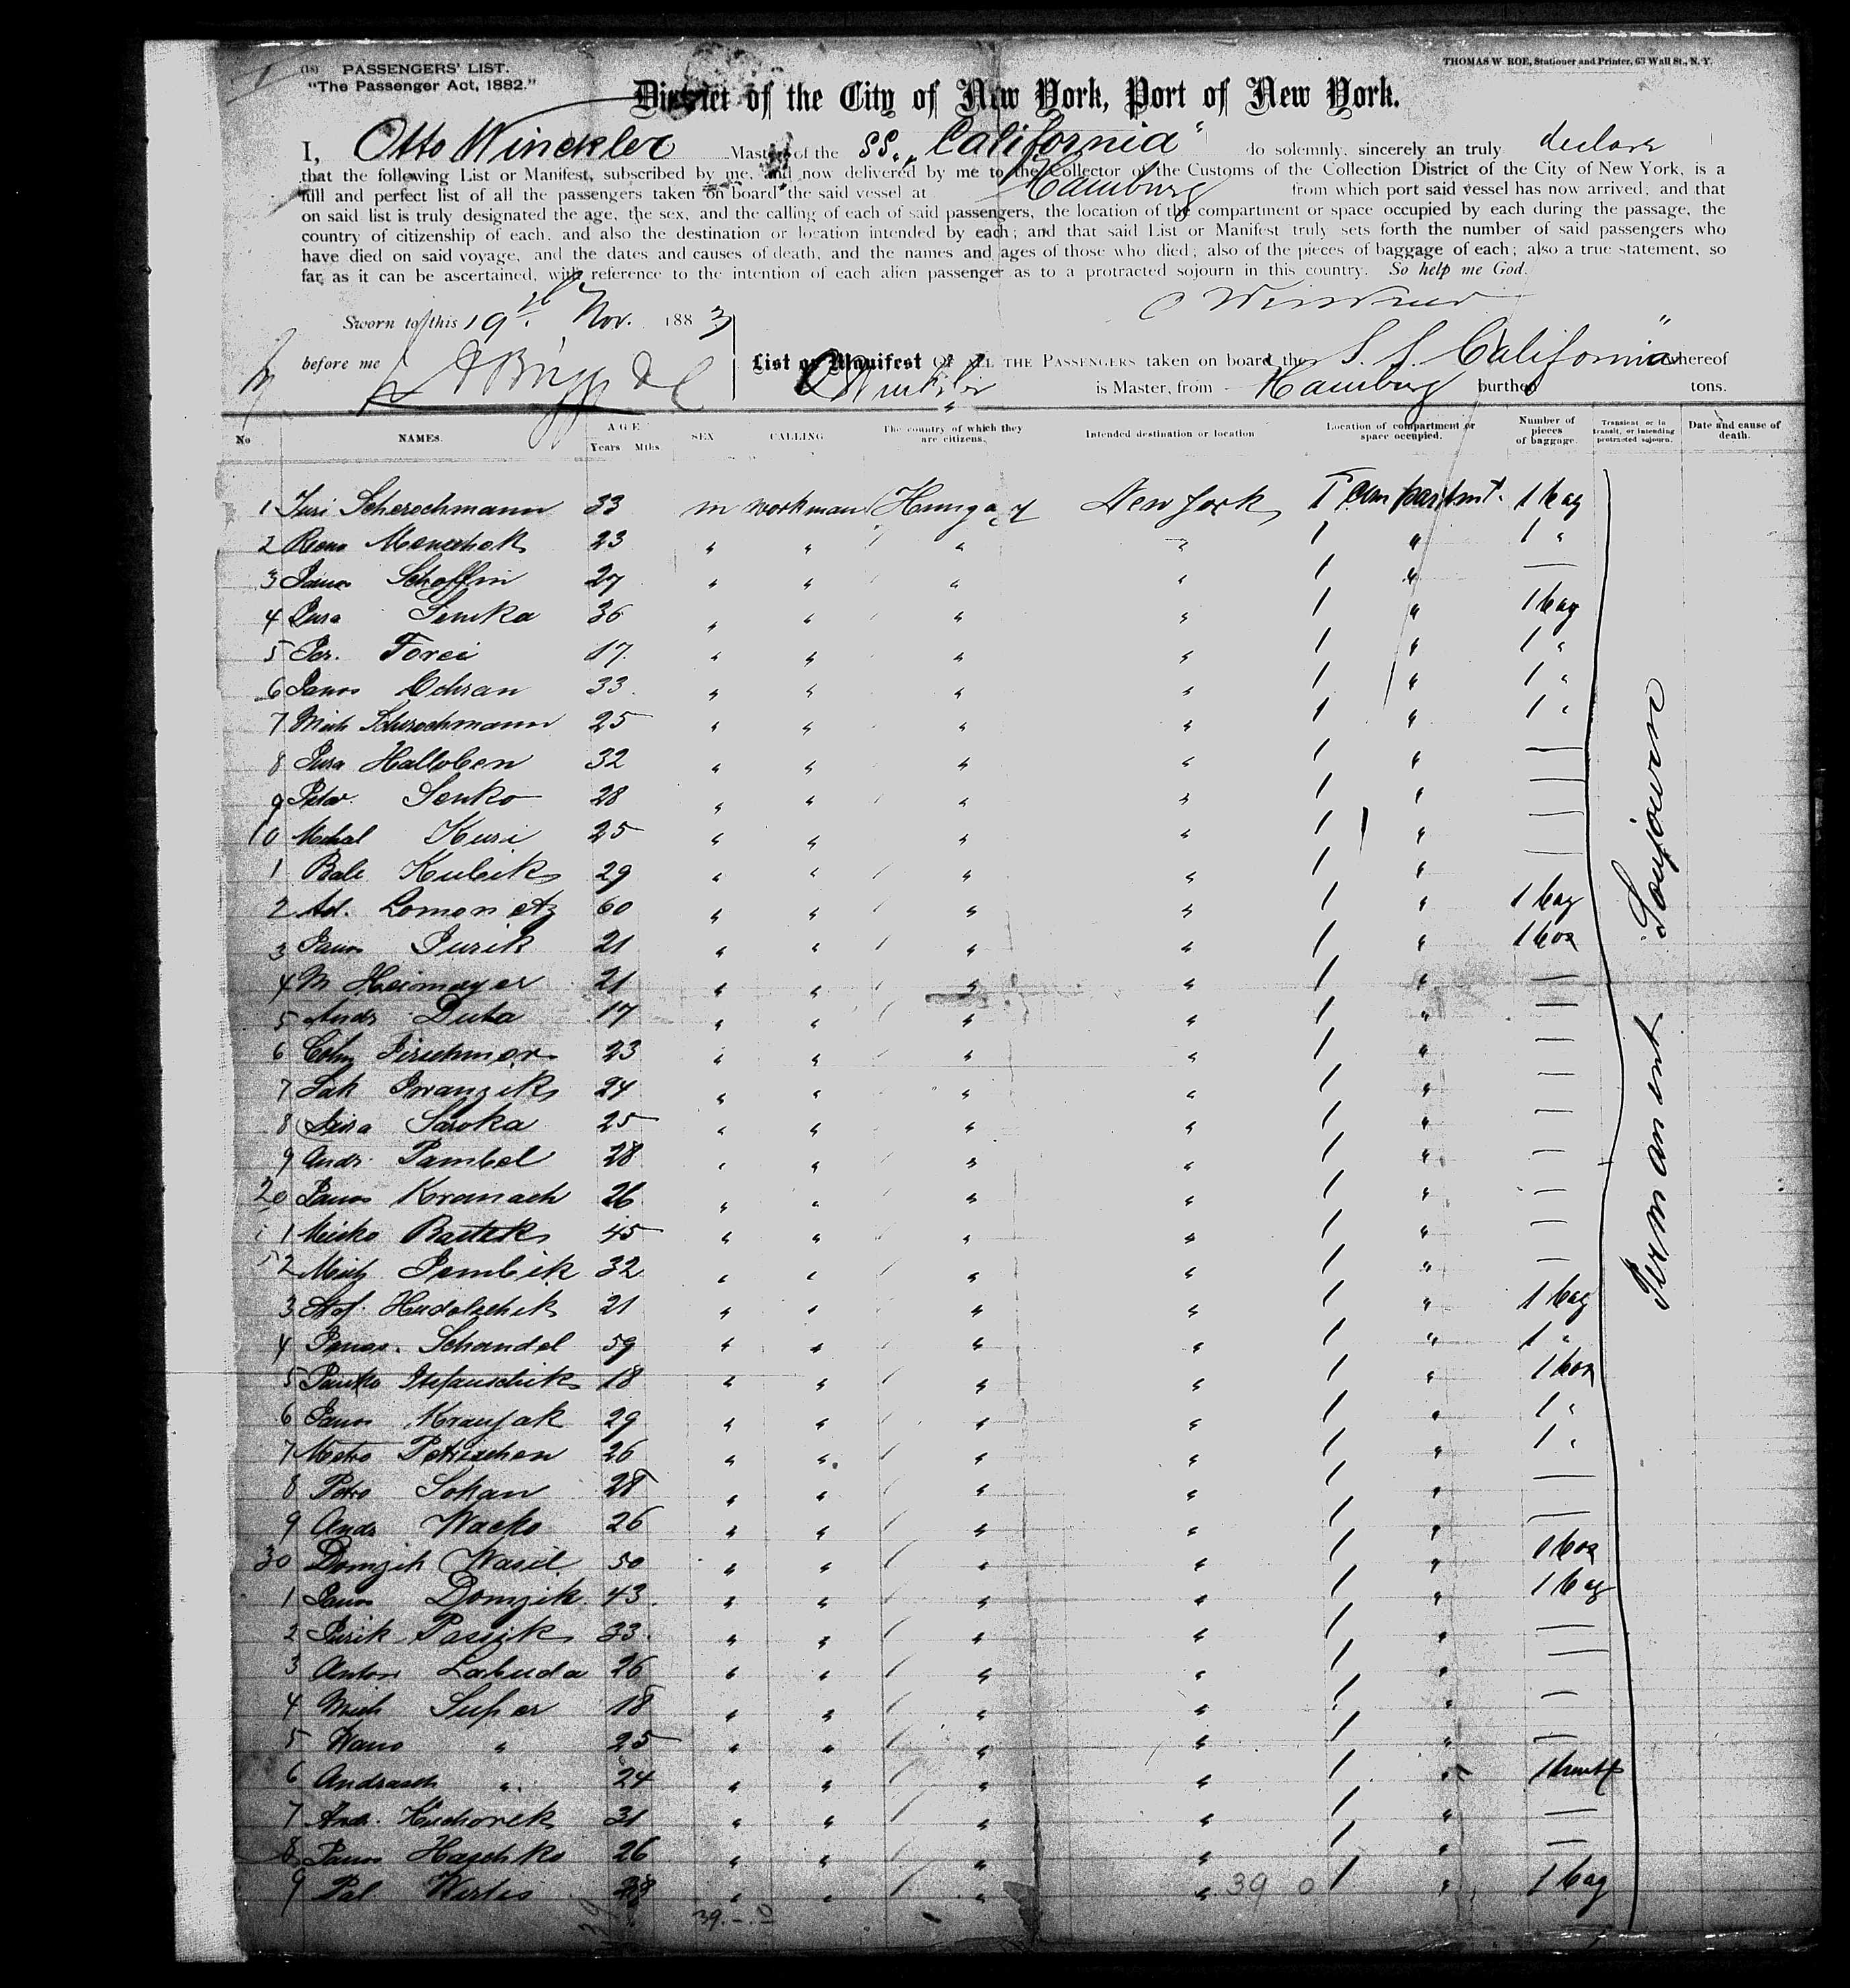 (18) PASSENGERS' LIST. THOMAS W. ROE, Stationer and Printer, 63 Wall St., N. Y.
"The Passenger Act, 1882."
District of the City of New York, Port of New York.
I, Otto Winckler Master of the SS. „California" do solemnly, sincerely an truly declare
that the following List or Manifest, subscribed by me, and now delivered by me to the Collector of the Customs of the Collection District of the City of New York, is a
full and perfect list of all the passengers taken on board the said vessel at Hamburg from which port said vessel has now arrived; and that
on said list is truly designated the age, the sex, and the calling of each of said passengers, the location of the compartment or space occupied by each during the passage, the
country of citizenship of each, and also the destination or location intended by each; and that said List or Manifest truly sets forth the number of said passengers who
have died on said voyage, and the dates and causes of death, and the names and ages of those who died; also of the pieces of baggage of each; also a true statement, so
far as it can be ascertained, with reference to the intention of each alien passenger as to a protracted sojourn in this country. So help me God.
O Winckler
Sworn to this 19th Nov. 1883
before me List or Manifest OF ALL THE PASSENGERS taken on board the S. S. California" whereof
O Winckler is Master, from Hamburg burthen tons.
No NAMES. AGE Years Mths SEX CALLING The country of which they are citizens. Intended destination or location Location of compartment or space occupied. Number of pieces of baggage. Transient or in transit, or intending protracted sojourn. Date and cause of death.
1 Juri Scherochmann 33 m workman Hungary New York 1 compartmt. 1 bag
2 Menschok 23 " " " " 1 " 1 "
3 Janos Schoffin 27 " " " " 1 " —
4 Jura Semka 36 " " " " 1 " 1 bag
5 Forei 17 " " " " 1 " 1 "
6 Janos Ochran 33 " " " " 1 " 1 "
7 Mich Scherochmann 25 " " " " 1 " 1 "
8 Jura Halloben 32 " " " " 1 " —
9 Peter Senko 28 " " " " 1 " —
10 Michal Kusi 25 " " " " 1 " —
1 Kubik 29 " " " " 1 "
2 Ad. Lomonitz 60 " " " " 1 " 1 bag
3 Janos Jurik 21 " " " " 1 " 1 box
4 M Heimayer 21 " " " " 1 " —
5 Andr Duta 17 " " " " 1 " —
6 Firschmer 23 " " " " 1 " —
7 Jak Iwanzik 24 " " " " 1 " —
8 Saroka 25 " " " " 1 " —
9 Andr. Pambel 28 " " " " 1 " —
20 Janos Kromach 26 " " " " 1 " —
1 Misko Bartek 45 " " " " 1 " —
2 Mich Jembik 32 " " " " 1 " —
3 Hudalschik 21 " " " " 1 " 1 bag
4 Janos. Schandel 59 " " " " 1 " 1 "
5 Janko Stefanschik 18 " " " " 1 " 1 box
6 Janos Kranjak 29 " " " " 1 " 1 "
7 Metro Petrischen 26 " " " " 1 " 1 "
8 Petro Sohan 28 " " " " 1 " —
9 Andr Wacko 26 " " " " 1 " —
30 Domzik Wasil 50 " " " " 1 " 1 box
1 Janos Domzik 43 " " " " 1 " 1 bag
2 Jurik 33 " " " " 1 " —
3 Anton Labuda 26 " " " " 1 " —
4 Mich Super 18 " " " " 1 " —
5 Wano " 25 " " " " 1 " —
6 Andrasch " 24 " " " " 1 " 1
7 Andr. Kuchorek 31 " " " " 1 " —
8 Janos Haschko 26 " " " " 1 " —
9 Pal Wertis " " " " 39 0 1 " 1 bag
39 39. – 0
Permanent Soujourn